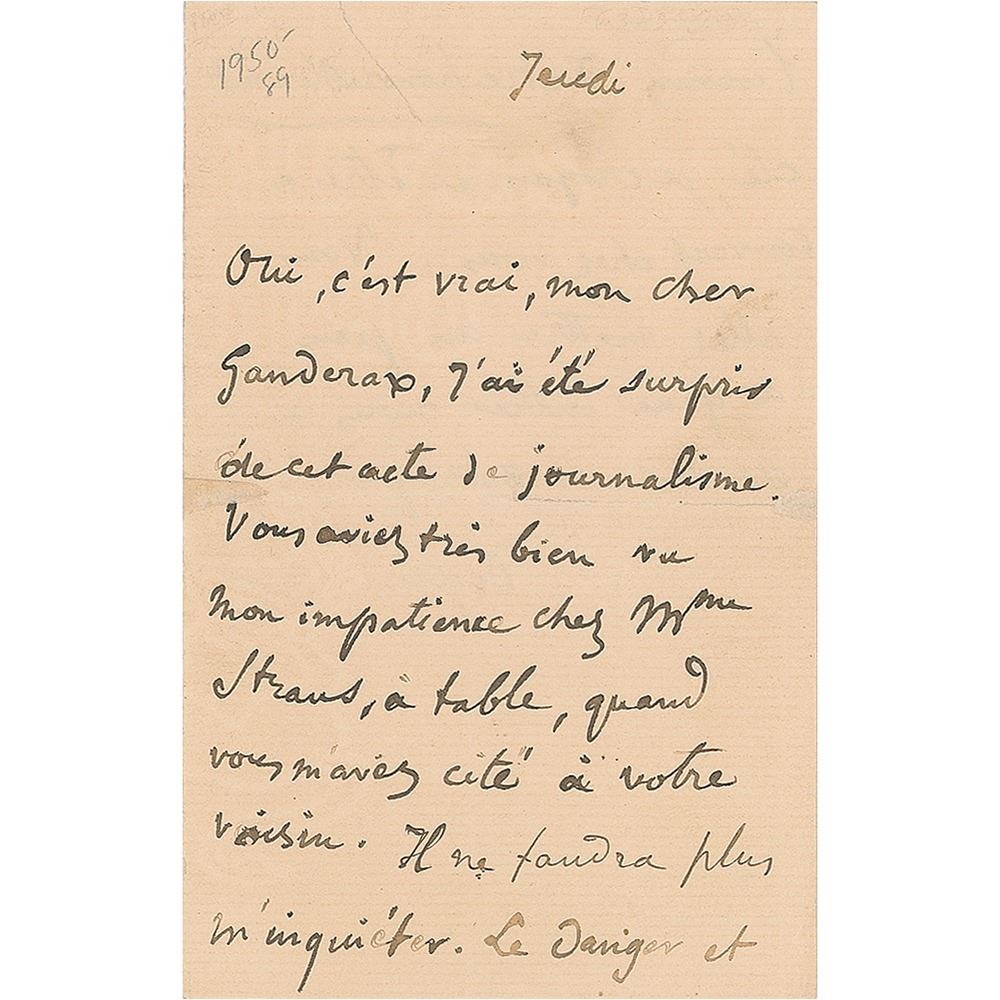 1950-
89
Jeudi
Oui, c'est vrai, mon cher
Ganderax, j'ai été surpris
de cet acte de journalisme.
Vous aviez très bien vu
mon impatience chez Mme
Straus, à table, quand
vous m'avez cité à votre
voisin. Il ne faudra plus
m'inquiéter. Le Danger et